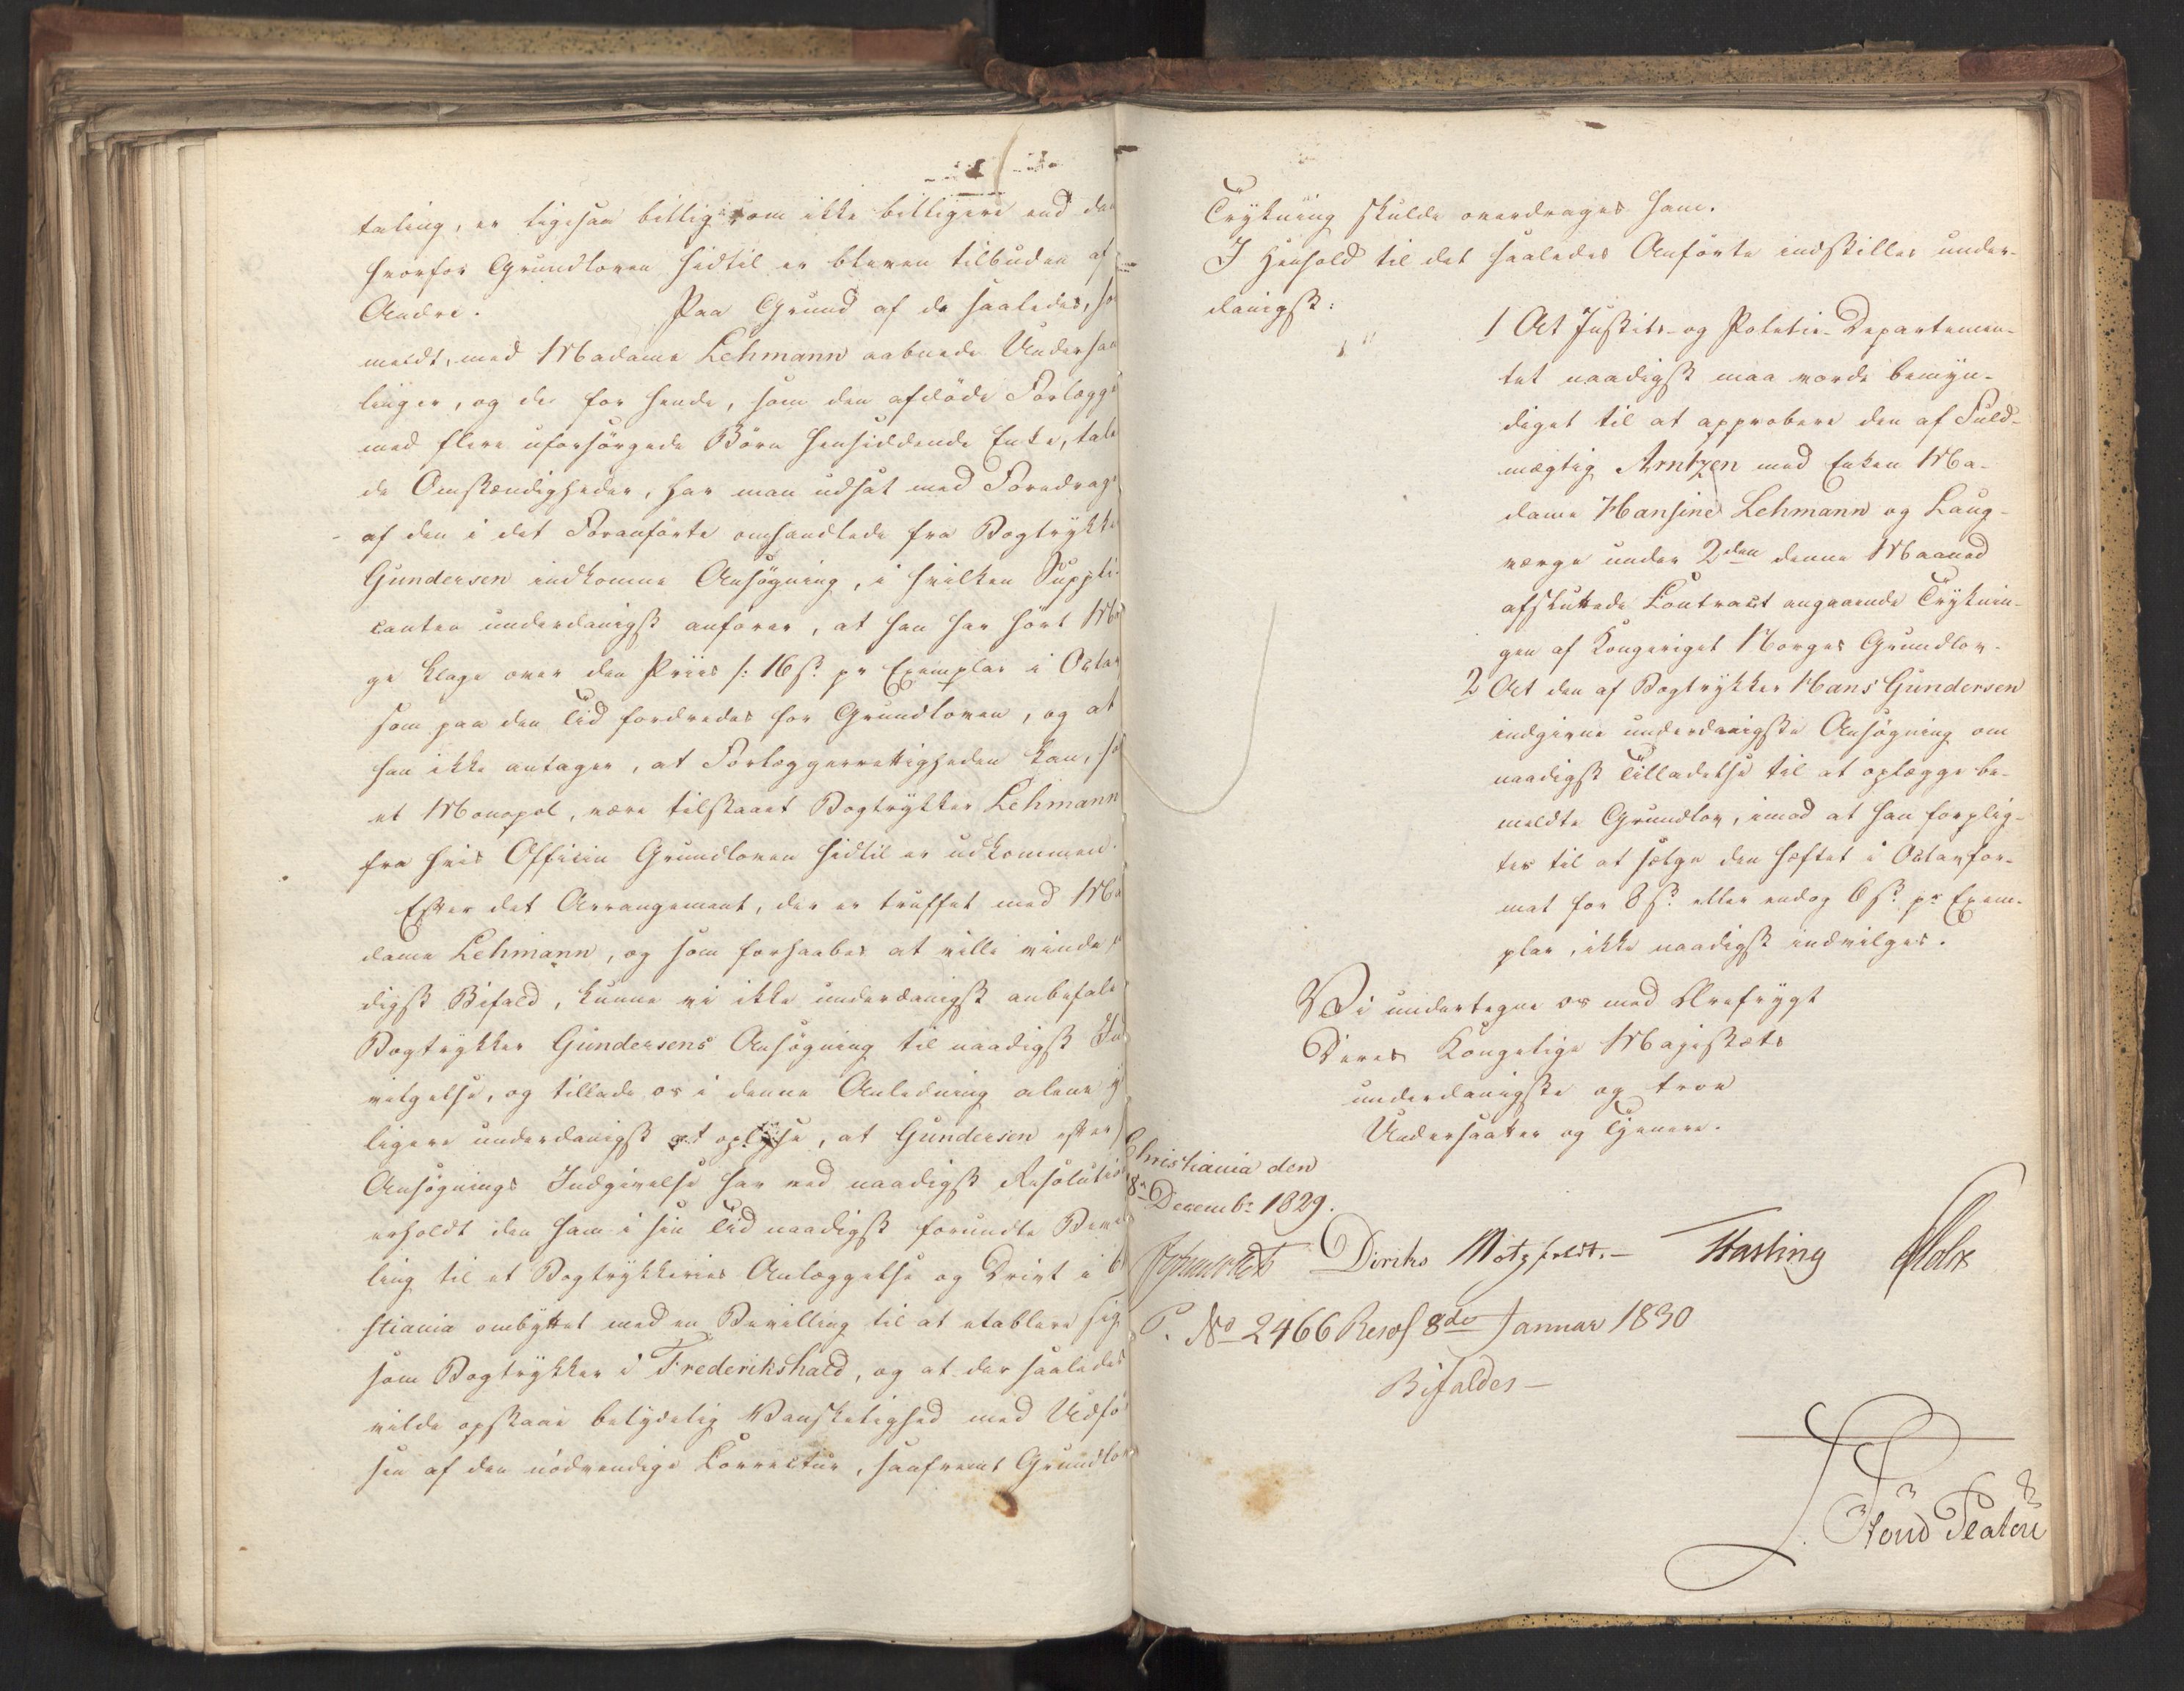 taling, er ligesaa billig som ikke billigere end den
hvorfor Grundloven hidtil er bleven tilbuden af
Andre. Paa Grund af de saaledes, so
meldt, med Madame Lehmann aabnede Underhan
linger, og de for hende, som den afdöde Forlægge
med flere uforsörgede Börn hensiddende Enke, tale
de Omstændigheder, har man udsat med Foredrage
af den i det Foranförte omhandlede fra Bogtrykke
Gundersen indkomne Ansögning, i hvilken Suppli-
canten underdanigst anförer, at han har hört Ma
ge klage over den Priis /: 16 s. pr Exemplar i Octav
som paa den Tid fordredes for Grundloven, og at
han ikke antager, at Forlæggerrettigheden kan, so
et Monopol, være tilstaaet Bogtrykker Lehmann
fra hvis Officin Grundloven hidtil er udkommen.
Efter det Arrangement, der er truffet med Ma
dame Lehmann, og som forhaabes at ville vinde
digst Bifald, kunne vi ikke underdanigst anbefale
Bogtrykker Gundersens Ansögning til naadigst Ind
vilgelse, og tillade os i denne Anledning alene y
ligere underdanigst at oplyse, at Gundersen efter
Ansögnings Indgivelse har ved naadigst Resolution
erholdt den ham i sin Tid naadigst forundte Bevil
ling til et Bogtrykkeries Anlæggelse og Drivt i
stiania ombyttet med en Bevilling til at etablere sig
som Bogtrykker i Frederikshald, og at der saaledes
vilde opstaae betydelig Vanskelighed med Udfö
sen af den nödvendige Correctur, saafremt Grundlov
Trykning skulde overdrages ham.
I Henhold til det saaledes Anförte indstilles under-
danigst:
1 At Justits- og Politie-Departemen-
tet naadigst maa vorde bemyn-
diget til at approbere den af Fuld-
mægtig Arntzen med Enken Ma-
dame Hansine Lehmann og Laug-
værge under 2den denne Maaned
afsluttede Contract angaaende Tryknin-
gen af Kongeriget Norges Grundlov.
2 At den af Bogtrykker Hans Gundersen
indgivne underdanigste Ansögning om
naadigst Tilladelse til at oplægge be-
meldte Grundlov, imod at han forplig-
tes til at sælge den hæftet i Octavfor-
mat for 8 s. eller endog 6 s. pr Exem-
plar, ikke naadigst indvilges.
Vi undertegne os med Ærefrygt
Deres Kongelige Majestæts
underdanigste og troe
Undersaatter og Tjenere.
Christiania den
8n Decembr 1829.
Diriks Motzfeldt.- Fasting Holst
P. No 2466 Resol 8de Januar 1830
Bifaldes-